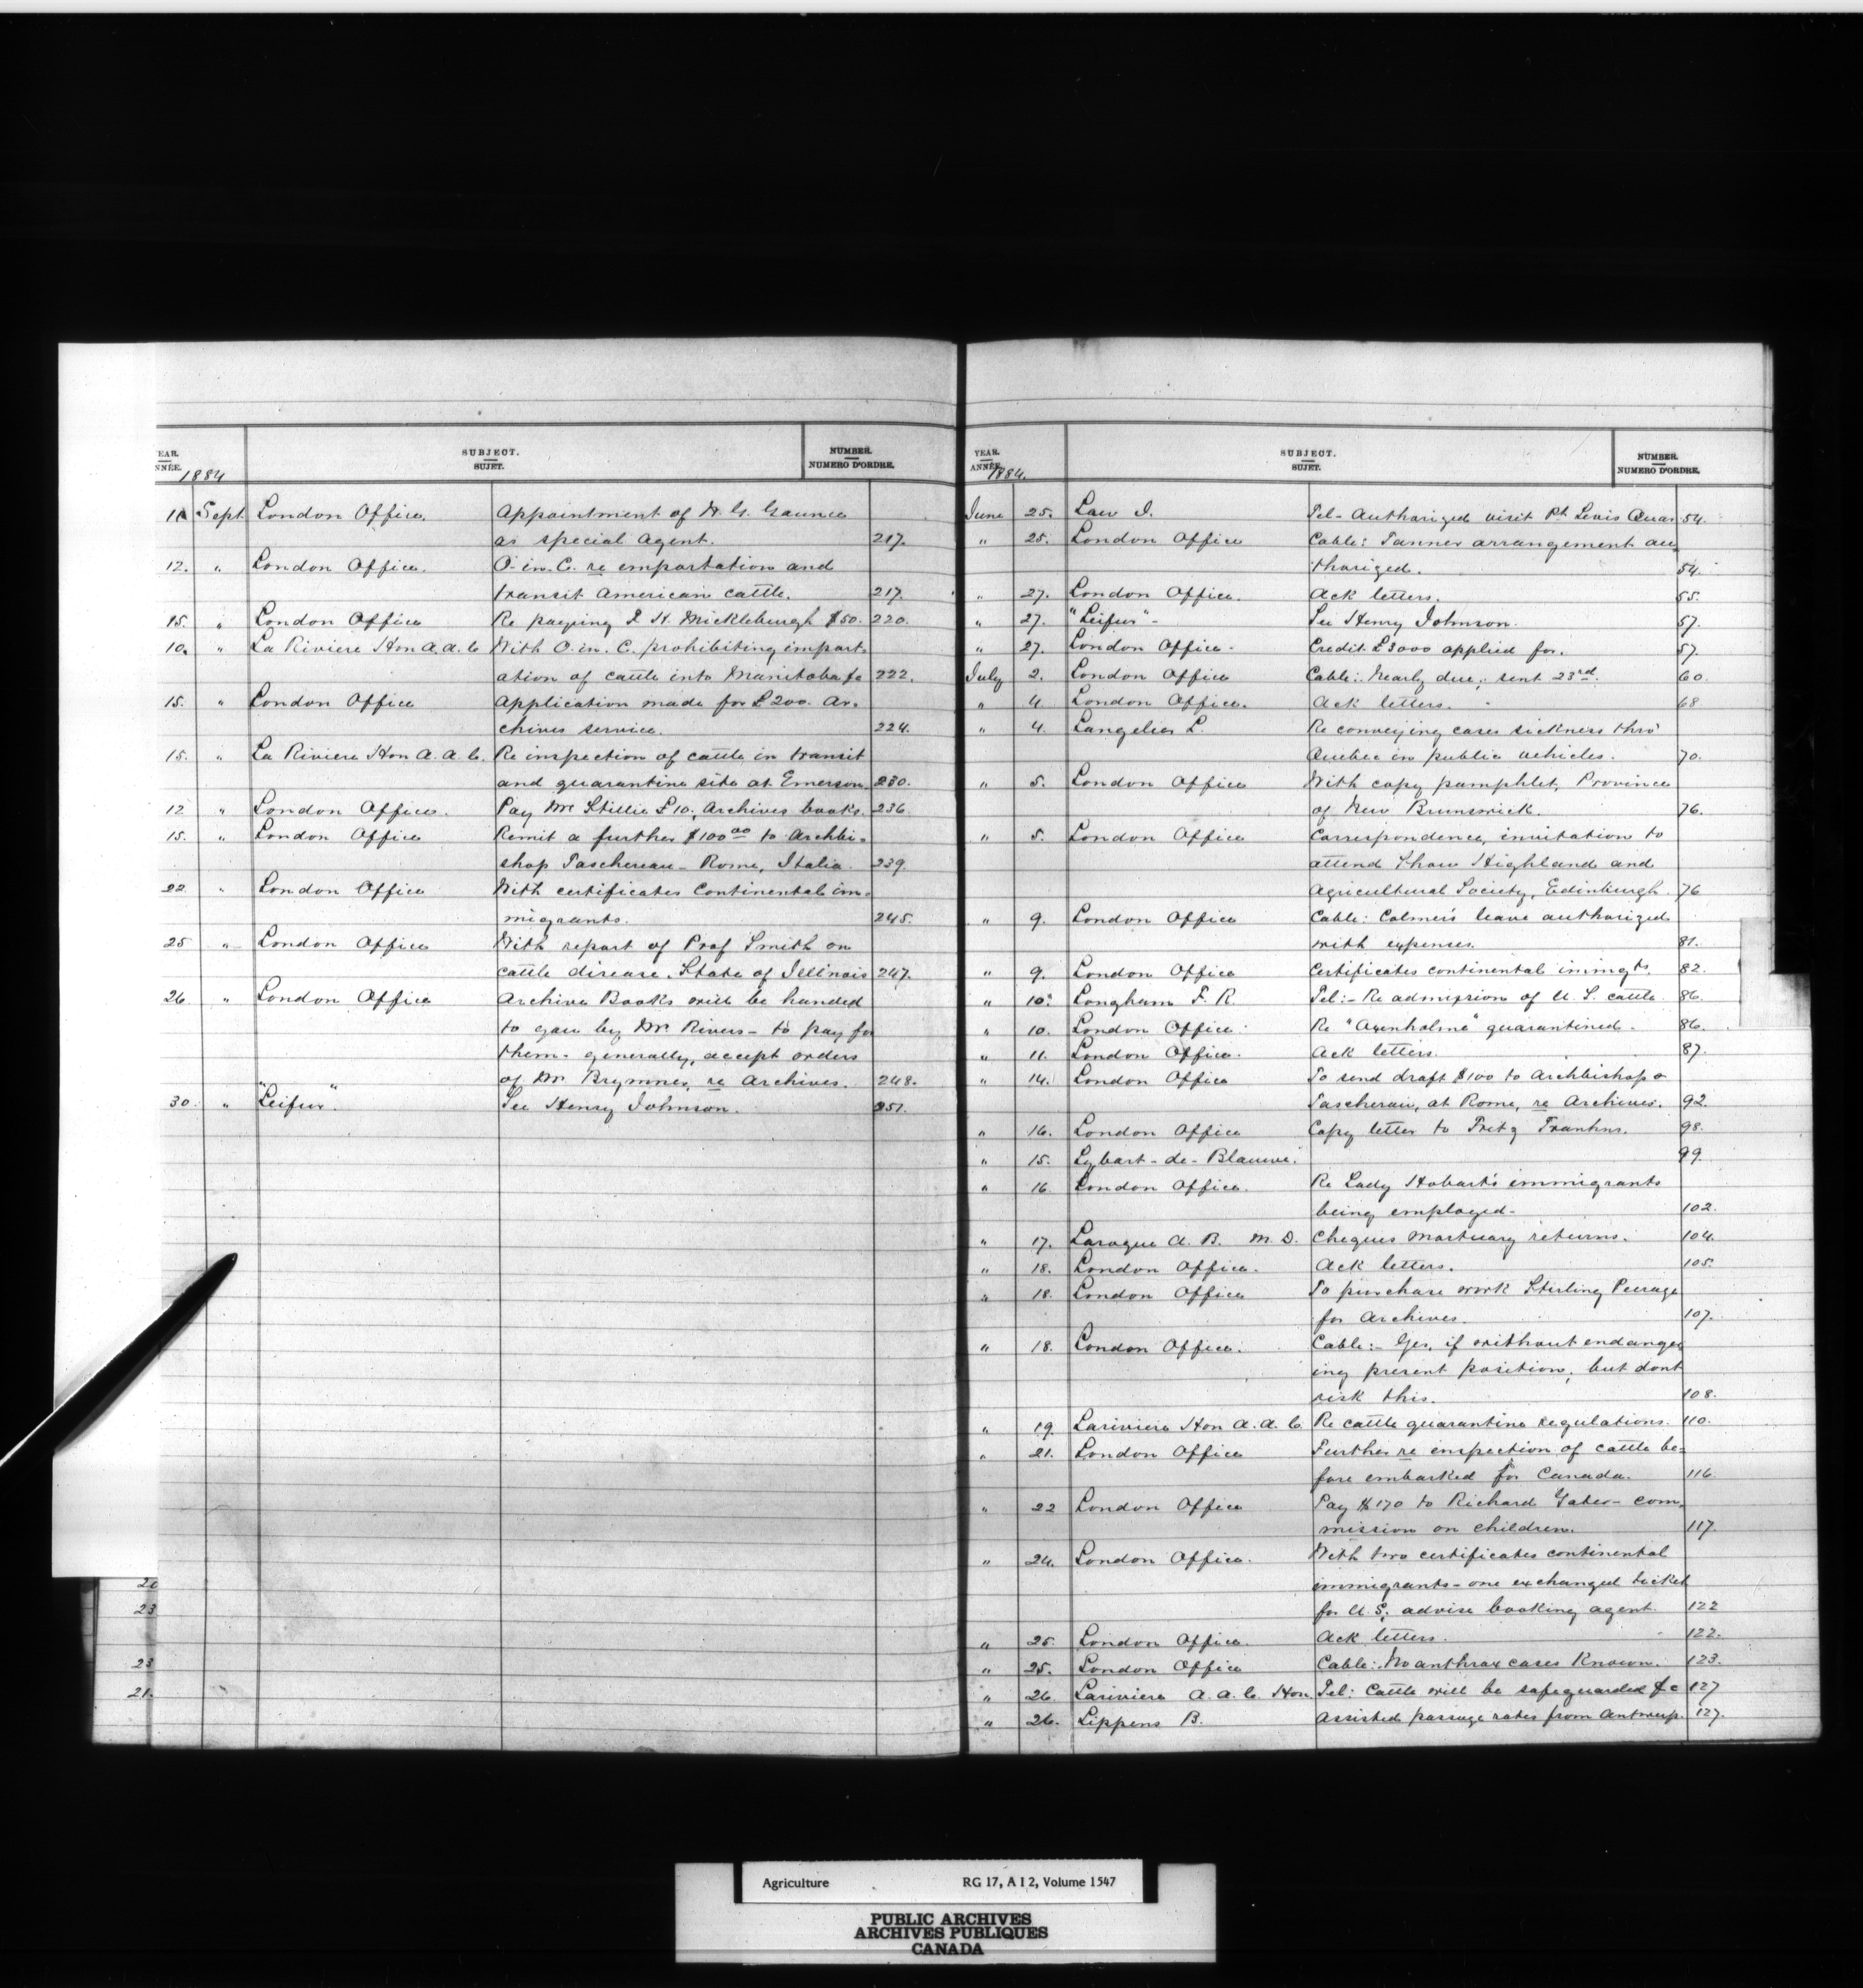 YEAR. SUBJECT. NUMBER.
ANNÉE. SUJET. NUMERO D'ORDRE.
1884
11 Sept. London Office. Appointment of W. G. Gaunce
as special Agent. 217.
12. " London Office. O-in-C. re importation and
transit American cattle. 217.
15. " London Office Re paying J. H. Mickleburgh $50. 220.
10. " La Riviere Hon A. A. C. With O. in. C. prohibiting import-
ation of cattle into Manitoba &c 222.
15. " London Office Application made for £200. Ar-
chives service. 224.
15. " La Riviere Hon A. A. C. Re inspection of cattle in transit
and quarantine site at Emerson. 230.
12 " London Office. Pay Mr Stillie £10. Archives books. 236
15. " London Office Remit a further $100 00 to Archbi-
shop Taschereau - Rome, Italia. 239.
22. " London Office With certificates Continental im-
migrants. 245.
25 " London Office With report of Prof Smith on
cattle disease, State of Illinois 247.
26 " London Office Archive Books will be handed
to you by Mr. Rivers - to pay for
them - generally, accept orders
of Mr Brymner, re Archives. 248.
30. " "Leifur". See Henry Johnson. 251.
20
23
23
21.
YEAR. SUBJECT. NUMBER.
ANNÉE. SUJET. NUMERO D'ORDRE.
1884.
June 25. Law J. Tel - Authorized visit Pt. Levis Quar. 54.
" 25. London Office Cable: Tanner arrangement au-
thorized. 54.
" 27. London Office. Ack letters. 55.
" 27. "Leifur" - See Henry Johnson. 57.
" 27. London Office - Credit £3000 applied for. 57.
July 2. London Office Cable: Nearly due; sent 23rd. 60.
" 4 London Office. Ack letters. 68
" 4. Langelier L. Re conveying cases sickness thro'
Quebec in public vehicles. 70.
" 5. London Office With copy pamphlet, Province
of New Brunswick. 76.
" 5. London Office Correspondence, invitation to
attend Show Highland and
Agricultural Society, Edinburgh. 76
" 9. London Office Cable: Colmer's leave authorized
with expenses. 81.
" 9. London Office Certificates continental immgts. 82.
" 10. Longham F. R. Tel:- Re admission of U. S. cattle. 86.
" 10. London Office Re "Axenholme" quarantined - 86.
" 11. London Office. Ack letters. 87.
" 14. London Office To send draft $100 to Archbishop
Taschereau, at Rome, re Archives. 92.
" 16. London Office Copy letter to Fritz 98.
" 15. Lybart-de-Blauwe. 99.
" 16 London Office. Re Lady Hobart's immigrants
being employed - 102.
" 17. Laroque A. B. M. D. Cheques Mortuary returns. 104.
" 18. London Office. Ack letters. 105.
" 18. London Office To purchase work Stirling Peerage
for Archives. 107.
" 18. London Office. Cable:- Yes, if without endanger-
ing present position, but dont
risk this. 108.
" 19. Lariviere Hon A. A. C. Re cattle quarantine regulations. 110.
" 21. London Office Further re inspection of cattle be-
fore embarked for Canada. 116.
" 22 London Office Pay $170 to Richard Yates - com-
mission on children. 117.
" 24. London Office. With two certificates continental
immigrants - one exchanged ticket
for U. S. advise booking agent. 122
" 25. London Office. Ack letters. 122.
" 25. London Office Cable: No anthrax cases Known. 123.
" 26 Lariviere A. A. C. Hon. Tel: Cattle will be safeguarded &c 127
" 26. Lippens B. Assisted passage rates from Antwerp. 127.
Agriculture RG 17, A I 2, Volume 1547
PUBLIC ARCHIVES
ARCHIVES PUBLIQUES
CANADA